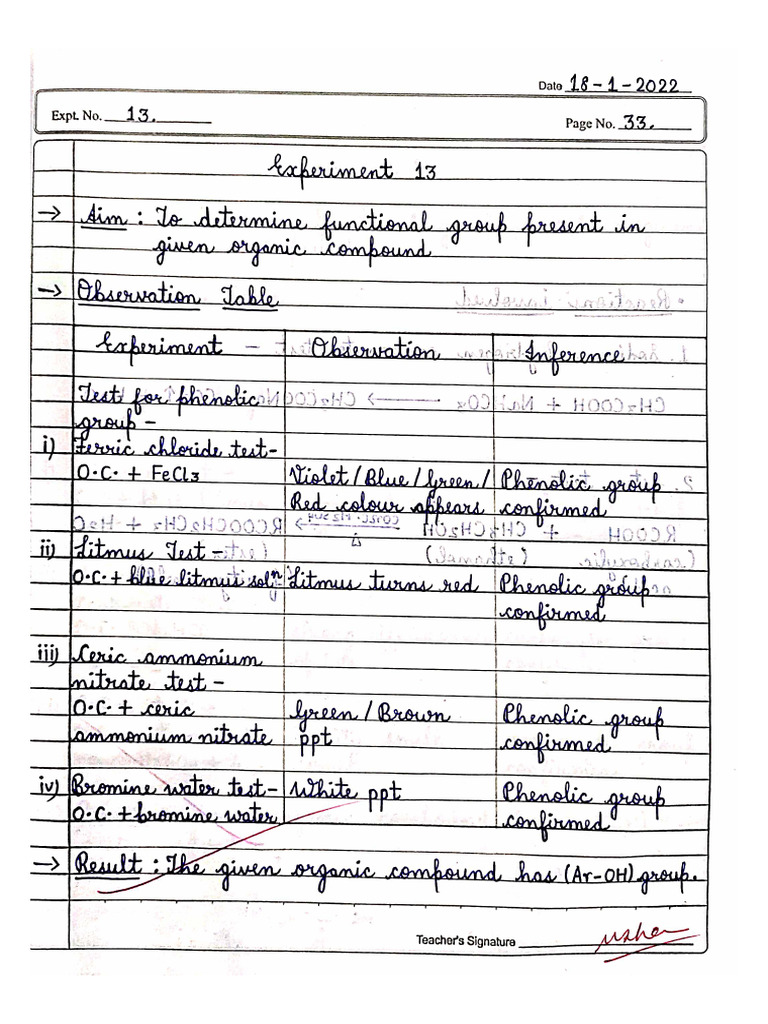 Date 18-1-2022
Expt. No. 13.
Page No. 33.
Experiment 13
→ Aim : To determine functional group present in
given organic compound
→ Observation Table
Experiment Observation Inference
Test for phenolic
group –
i) Ferric chloride test-
O.C. + FeCl3 Violet / Blue / Green / Phenolic group
Red colour appears confirmed
ii) Litmus Test –
O.C. + blue litmus solⁿ Litmus turns red Phenolic group
confirmed
iii) Ceric ammonium
nitrate test –
O.C. + ceric Green / Brown Phenolic group
ammonium nitrate ppt confirmed
iv) Bromine water test- White ppt Phenolic group
O.C. + bromine water confirmed
→ Result : The given organic compound has (Ar-OH) group.
Teacher's Signature